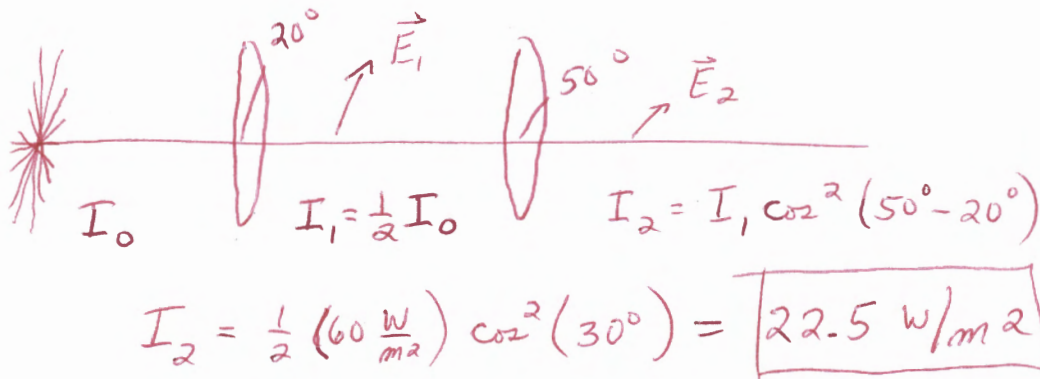 20° E⃗₁ 50° E⃗₂
I₀ I₁ = ½ I₀ I₂ = I₁ cos² (50° - 20°)
I₂ = ½ (60 W/m²) cos² (30°) = 22.5 W/m²